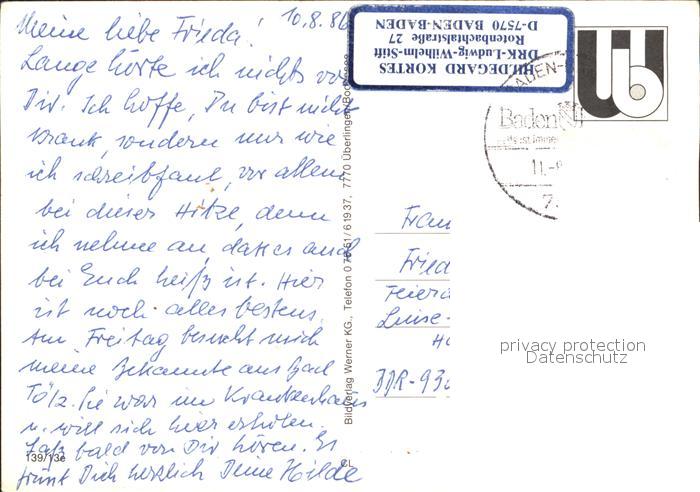 Meine liebe Frieda! 10.8.86
Lange hörte ich nichts von
Dir. Ich hoffe, Du bist nicht
krank, sondern nur wie
ich schreibfaul, vor allem
bei dieser Hitze, denn
ich nehme an, dass es auch
bei Euch heiß ist. Hier
ist noch alles bestens.
Am Freitag besucht mich
meine Bekannte aus Bad
Tölz. Sie war im Krankenhaus
u. will sich hier erholen.
Laß bald von Dir hören. Es
grüßt Dich herzlich Deine Hilde
139/13e
HILDEGARD KORTES
DRK-Ludwig-Wilhelm-Stift
Rotenbachtalstraße 27
D-7570 BADEN-BADEN
Bildverlag Werner KG., Telefon 0 75 51 / 6 19 37, 7770 Überlingen/Bodensee
CL
BADEN-
Baden
11.-8
7
Frau
Fried
Feiera
Luise-
DDR-93
privacy protection
Datenschutz